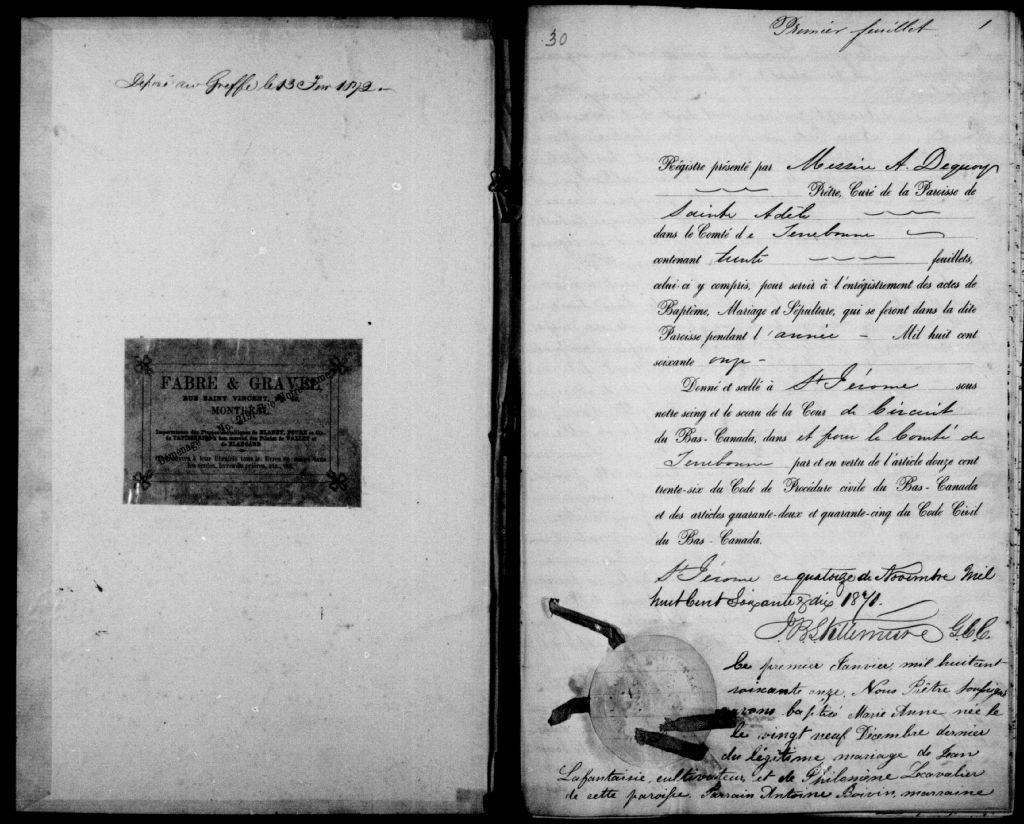 Déposé au Greffe le 13 Jer 1872.
FABRE & GRAVEL
RUE SAINT VINCENT,
MONTRÉAL
Importateurs des Papiers
de TAPISSERIES à bon marché, des Pilules de VALLET et
de BLANCARD
à leur librairie tous les livres en usage dans
les écoles, livres de prières, etc., etc.
Déménagé No. 219, Rue Notre-Dame
30
Premier feuillet
1
Régistre présenté par Messire A. Dequoy
Prêtre, Curé de la Paroisse de
Sainte Adèle
dans le Comté de Terrebonne
contenant trente feuillets,
celui-ci y compris, pour servir à l'enrégistrement des actes de
Baptême, Mariage et Sépulture, qui se feront dans la dite
Paroisse pendant l'année - Mil huit cent
soixante onze -
Donné et scellé à St Jérome sous
notre seing et le sceau de la Cour de Circuit
du Bas-Canada, dans et pour le Comté de
Terrebonne par et en vertu de l'article douze cent
trente-six du Code de Procédure civile du Bas-Canada
et des articles quarante-deux et quarante-cinq du Code Civil
du Bas-Canada.
St Jérome ce quatorze de Novembre Mil
huit Cent Soixante & dix 1871.
G.C.C.
Le premier Janvier, mil huit cent
soixante onze, Nous Prêtre soussigné
avons baptisé Marie Anne née le
le vingt neuf Décembre dernier
du légitime mariage de Jean
Lafantaisie, cultivateur et de Philomène Lecavalier
de cette paroisse. Parrain Antoine Boivin, marraine